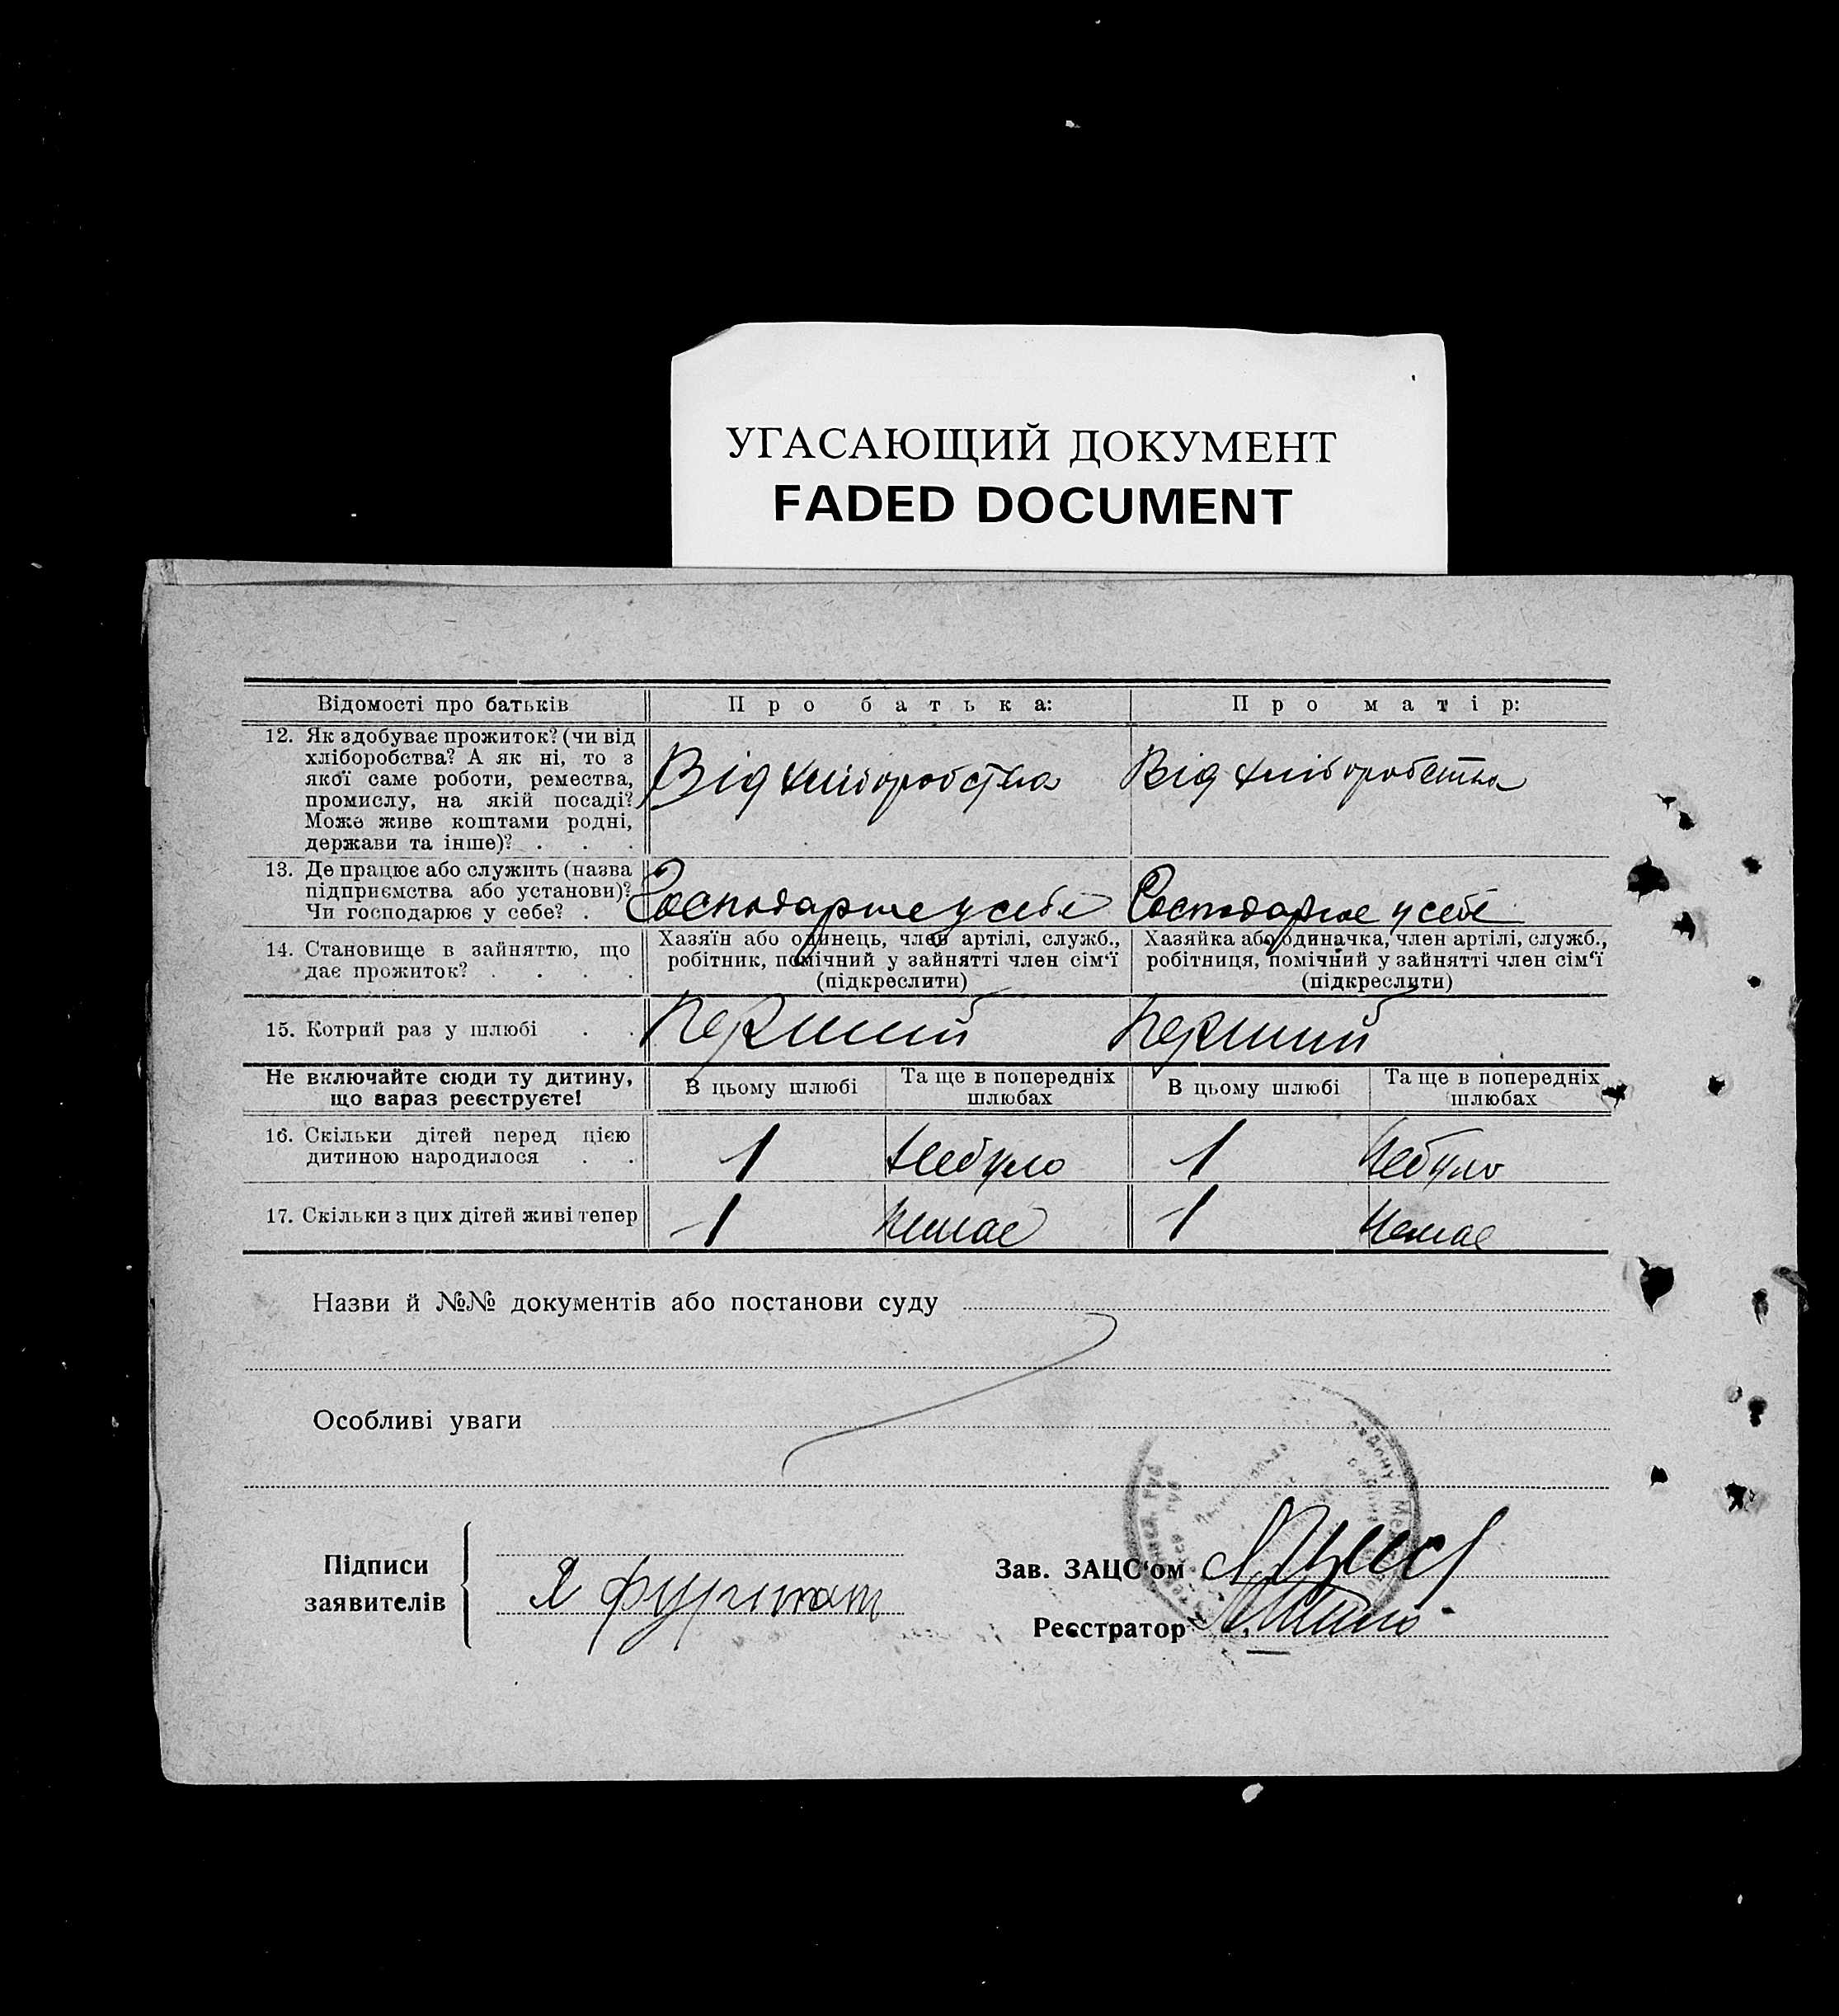 УГАСАЮЩИЙ ДОКУМЕНТ
FADED DOCUMENT
Відомості про батьків
Про батька:
Про матір:
12. Як здобуває прожиток? (чи від
хліборобства? А як ні, то з
якої саме роботи, ремества,
промислу, на якій посаді?
Може живе коштами родні,
держави та інше)? . . .
Від хліборобства
Від хліборобства
13. Де працює або служить (назва
підприємства або установи)?
Чи господарює у себе? .
Господарює у себе
Господарює у себе
14. Становище в зайняттю, що
дає прожиток? . . . .
Хазяїн або одинець, член артілі, служб.,
робітник, помічний у зайнятті член сім'ї
(підкреслити)
Хазяйка або одиначка, член артілі, служб.,
робітниця, помічний у зайнятті член сім'ї
(підкреслити)
15. Котрий раз у шлюбі . .
Перший
Перший
Не включайте сюди ту дитину,
що зараз реєструєте!
В цьому шлюбі
Та ще в попередніх
шлюбах
В цьому шлюбі
Та ще в попередніх
шлюбах
16. Скільки дітей перед цією
дитиною народилося . .
1
Небуло
1
Небуло
17. Скільки з цих дітей живі тепер
1
Немає
1
Немає
Назви й №№ документів або постанови суду
Особливі уваги
Підписи
заявителів
Я Фурман
Зав. ЗАЦС'ом
Реєстратор